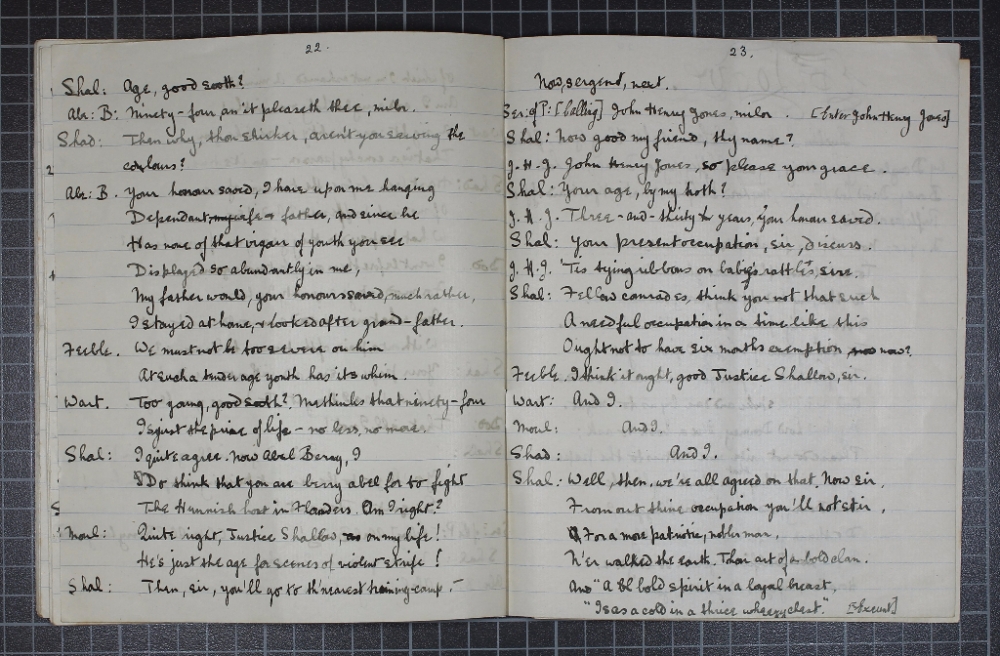 22.
Shal: Age, good sooth?
Abr: B: Ninety-four an't pleaseth thee, milor.
Shad: Then why, thou shirker, aren't you serving the
colours?
Abr: B. Your honour saved, I have upon me hanging
Dependant, my wife & father, and since he
Has none of that vigour of youth you see
Displayed so abundantly in me,
My father would, your honour saved, much rather,
I stayed at home, & looked after grand-father.
Feeble. We must not be too severe on him
At such a tender age youth has its whim.
Wart. Too young, good sooth? Methinks that ninety-four
Is just the prime of life - no less, no more.
Shal: I quite agree. Now Abel Berry, I
Do think that you are berry abel for to fight
The Hunnish host in Flanders. Am I right?
Moul: Quite right, Justice Shallow, on my life!
He's just the age for scenes of violent strife!
Shal: Then, sir, you'll go to th'nearest training-camp.
23.
Now, sergent, next.
Ser: of P: [Calling] John Henry Jones, milor. [Enter John Henry Jones]
Shal: Now good my friend, thy name?
J. H. J. John Henry Jones, so please your grace.
Shal: Your age, by my troth?
J. H. J. Three-and-thirty years, your honour saved.
Shal: Your present occupation, sir, discuss.
J. H. J. 'Tis tying ribbons on babies' rattles, sire.
Shal: Fellow comrades, think you not that such
A needful occupation in a time like this
Ought not to have six months exemption now?
Feeble. I think it ought, good Justice Shallow, sir.
Wart: And I.
Moul: And I.
Shad: And I.
Shal: Well, then, we're all agreed on that. Now sir,
From out thine occupation you'll not stir,
For a more patriotic, nobler man,
N'er walked the earth. Thou art of a bold clan.
And "A bold spirit in a loyal breast,
"Is as a cold in a thrice wheezy chest." [Exeunt]